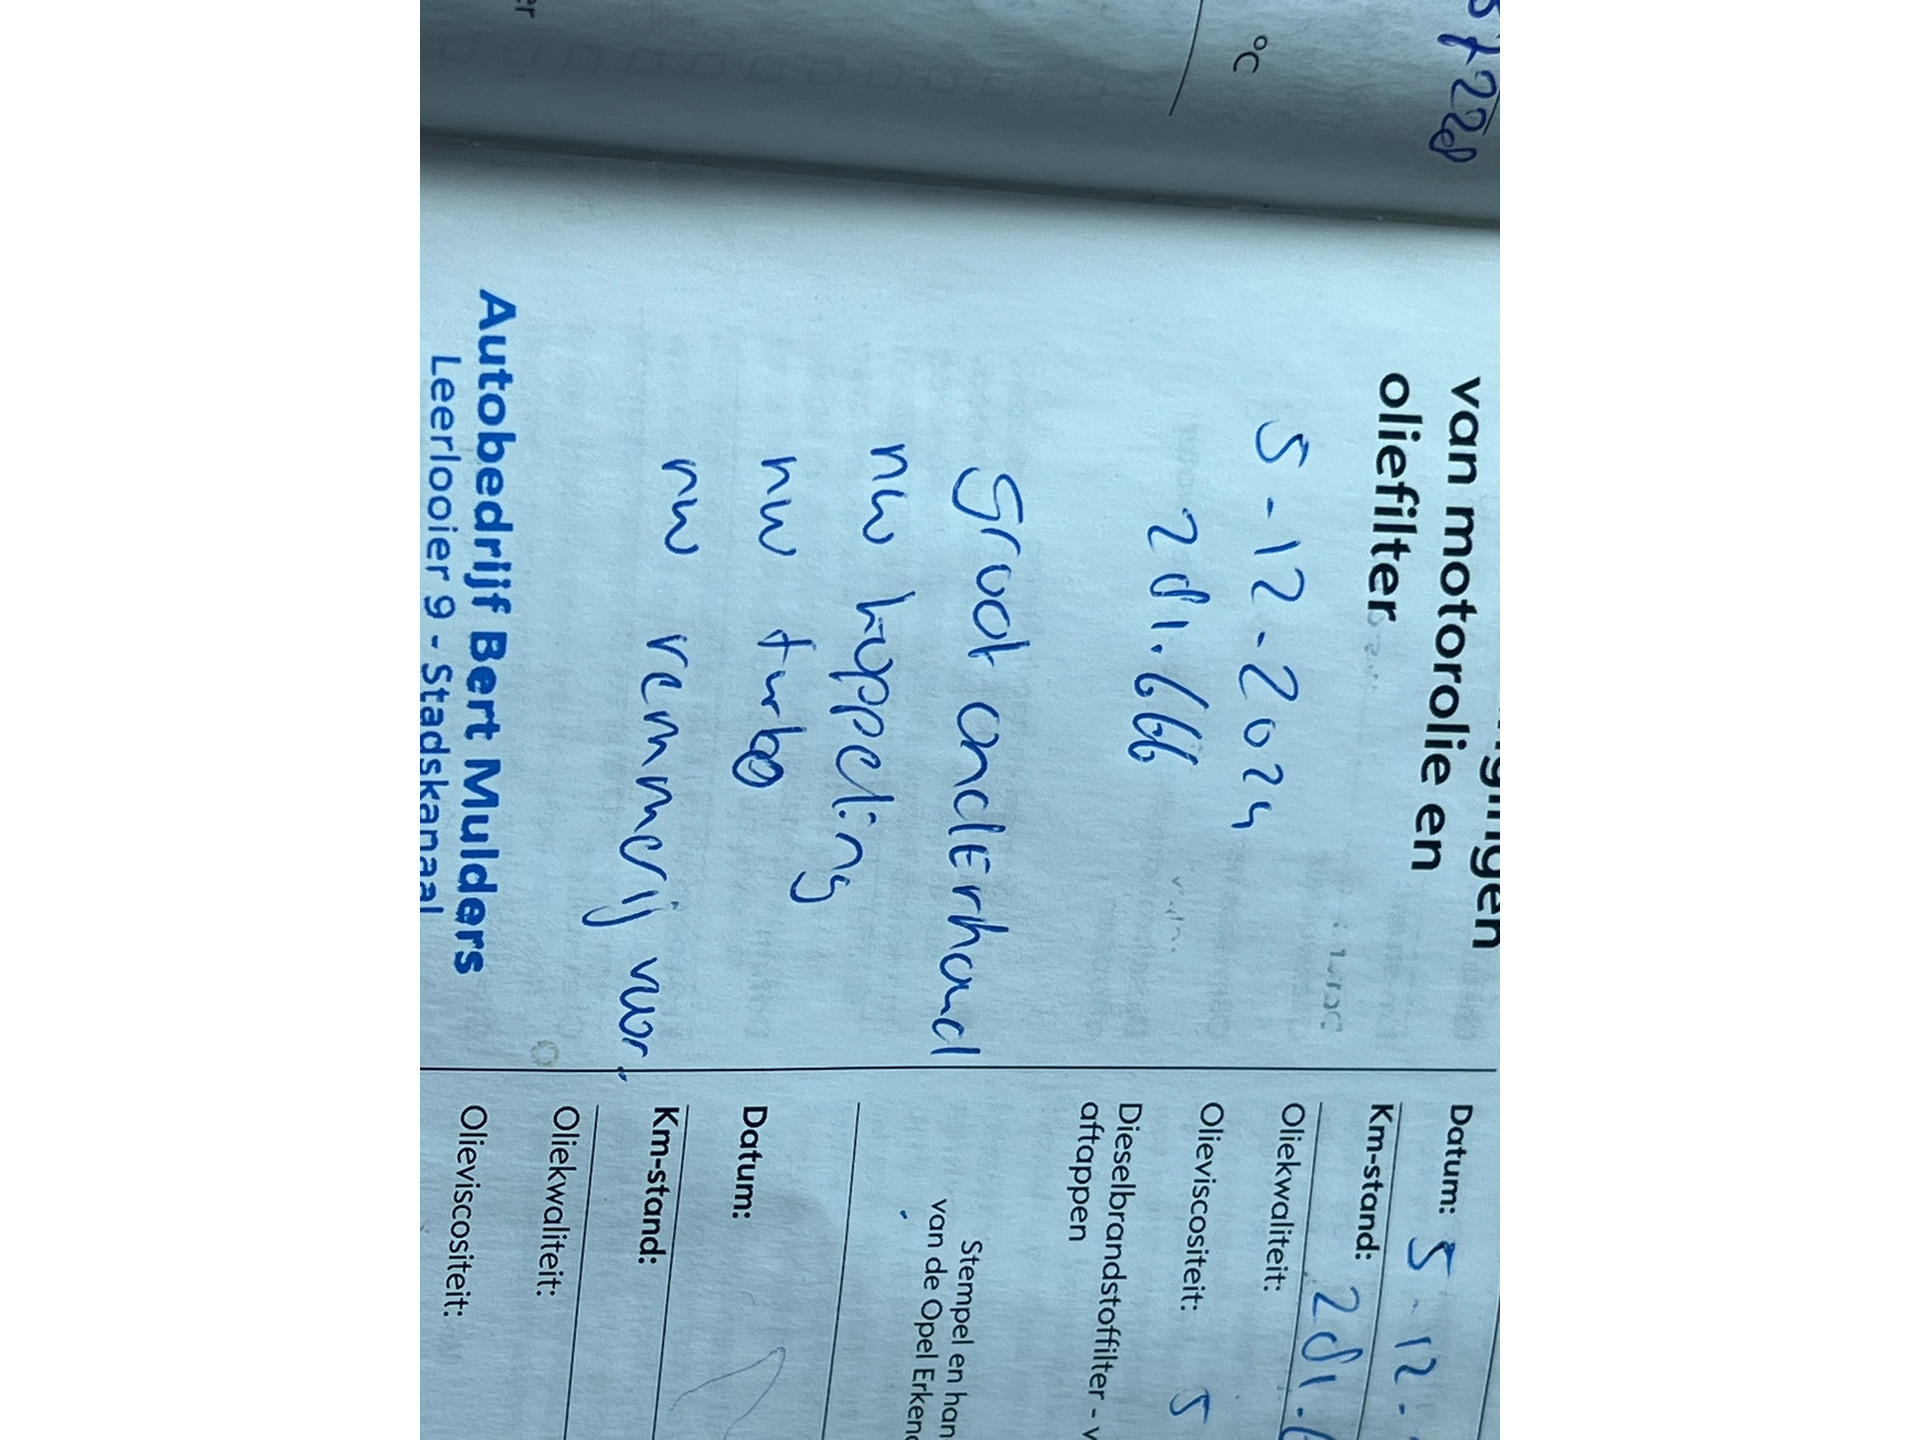 van motorolie en
oliefilter
5-12-2024
281.666
Groot ondErhoud
nw koppeling
nw turbo
nw remmerij voor.
Autobedrijf Bert Mulders
Leerlooier 9 - Stadskanaal
Datum: 5-12-
Km-stand: 281.
Oliekwaliteit:
Olieviscositeit: 5
Dieselbrandstoffilter -
aftappen
Stempel en
van de Opel
Datum:
Km-stand:
Oliekwaliteit:
Olieviscositeit:
°C